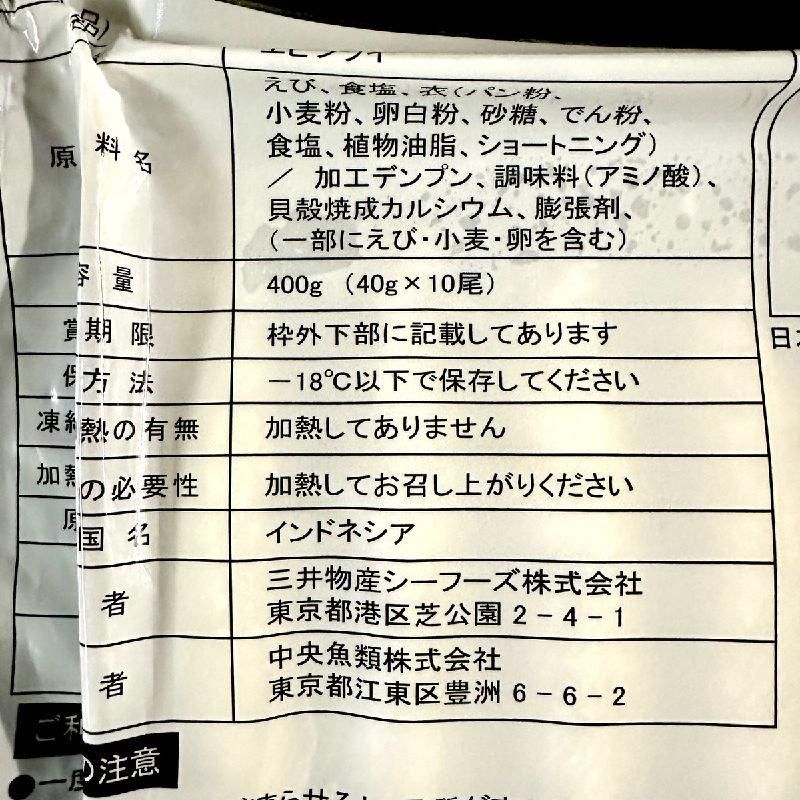 品)
エビフライ
えび、食塩、衣(パン粉、
小麦粉、卵白粉、砂糖、でん粉、
原 料名 食塩、植物油脂、ショートニング)
/ 加工デンプン、調味料(アミノ酸)、
貝殻焼成カルシウム、膨張剤、
(一部にえび・小麦・卵を含む)
容量 400g (40g×10尾)
賞期限 枠外下部に記載してあります
保方法 -18℃以下で保存してください
凍結熱の有無 加熱してありません
加熱の必要性 加熱してお召し上がりください
原国名 インドネシア
者 三井物産シーフーズ株式会社
東京都港区芝公園2-4-1
者 中央魚類株式会社
東京都江東区豊洲6-6-2
日本
ご利の注意
●一度